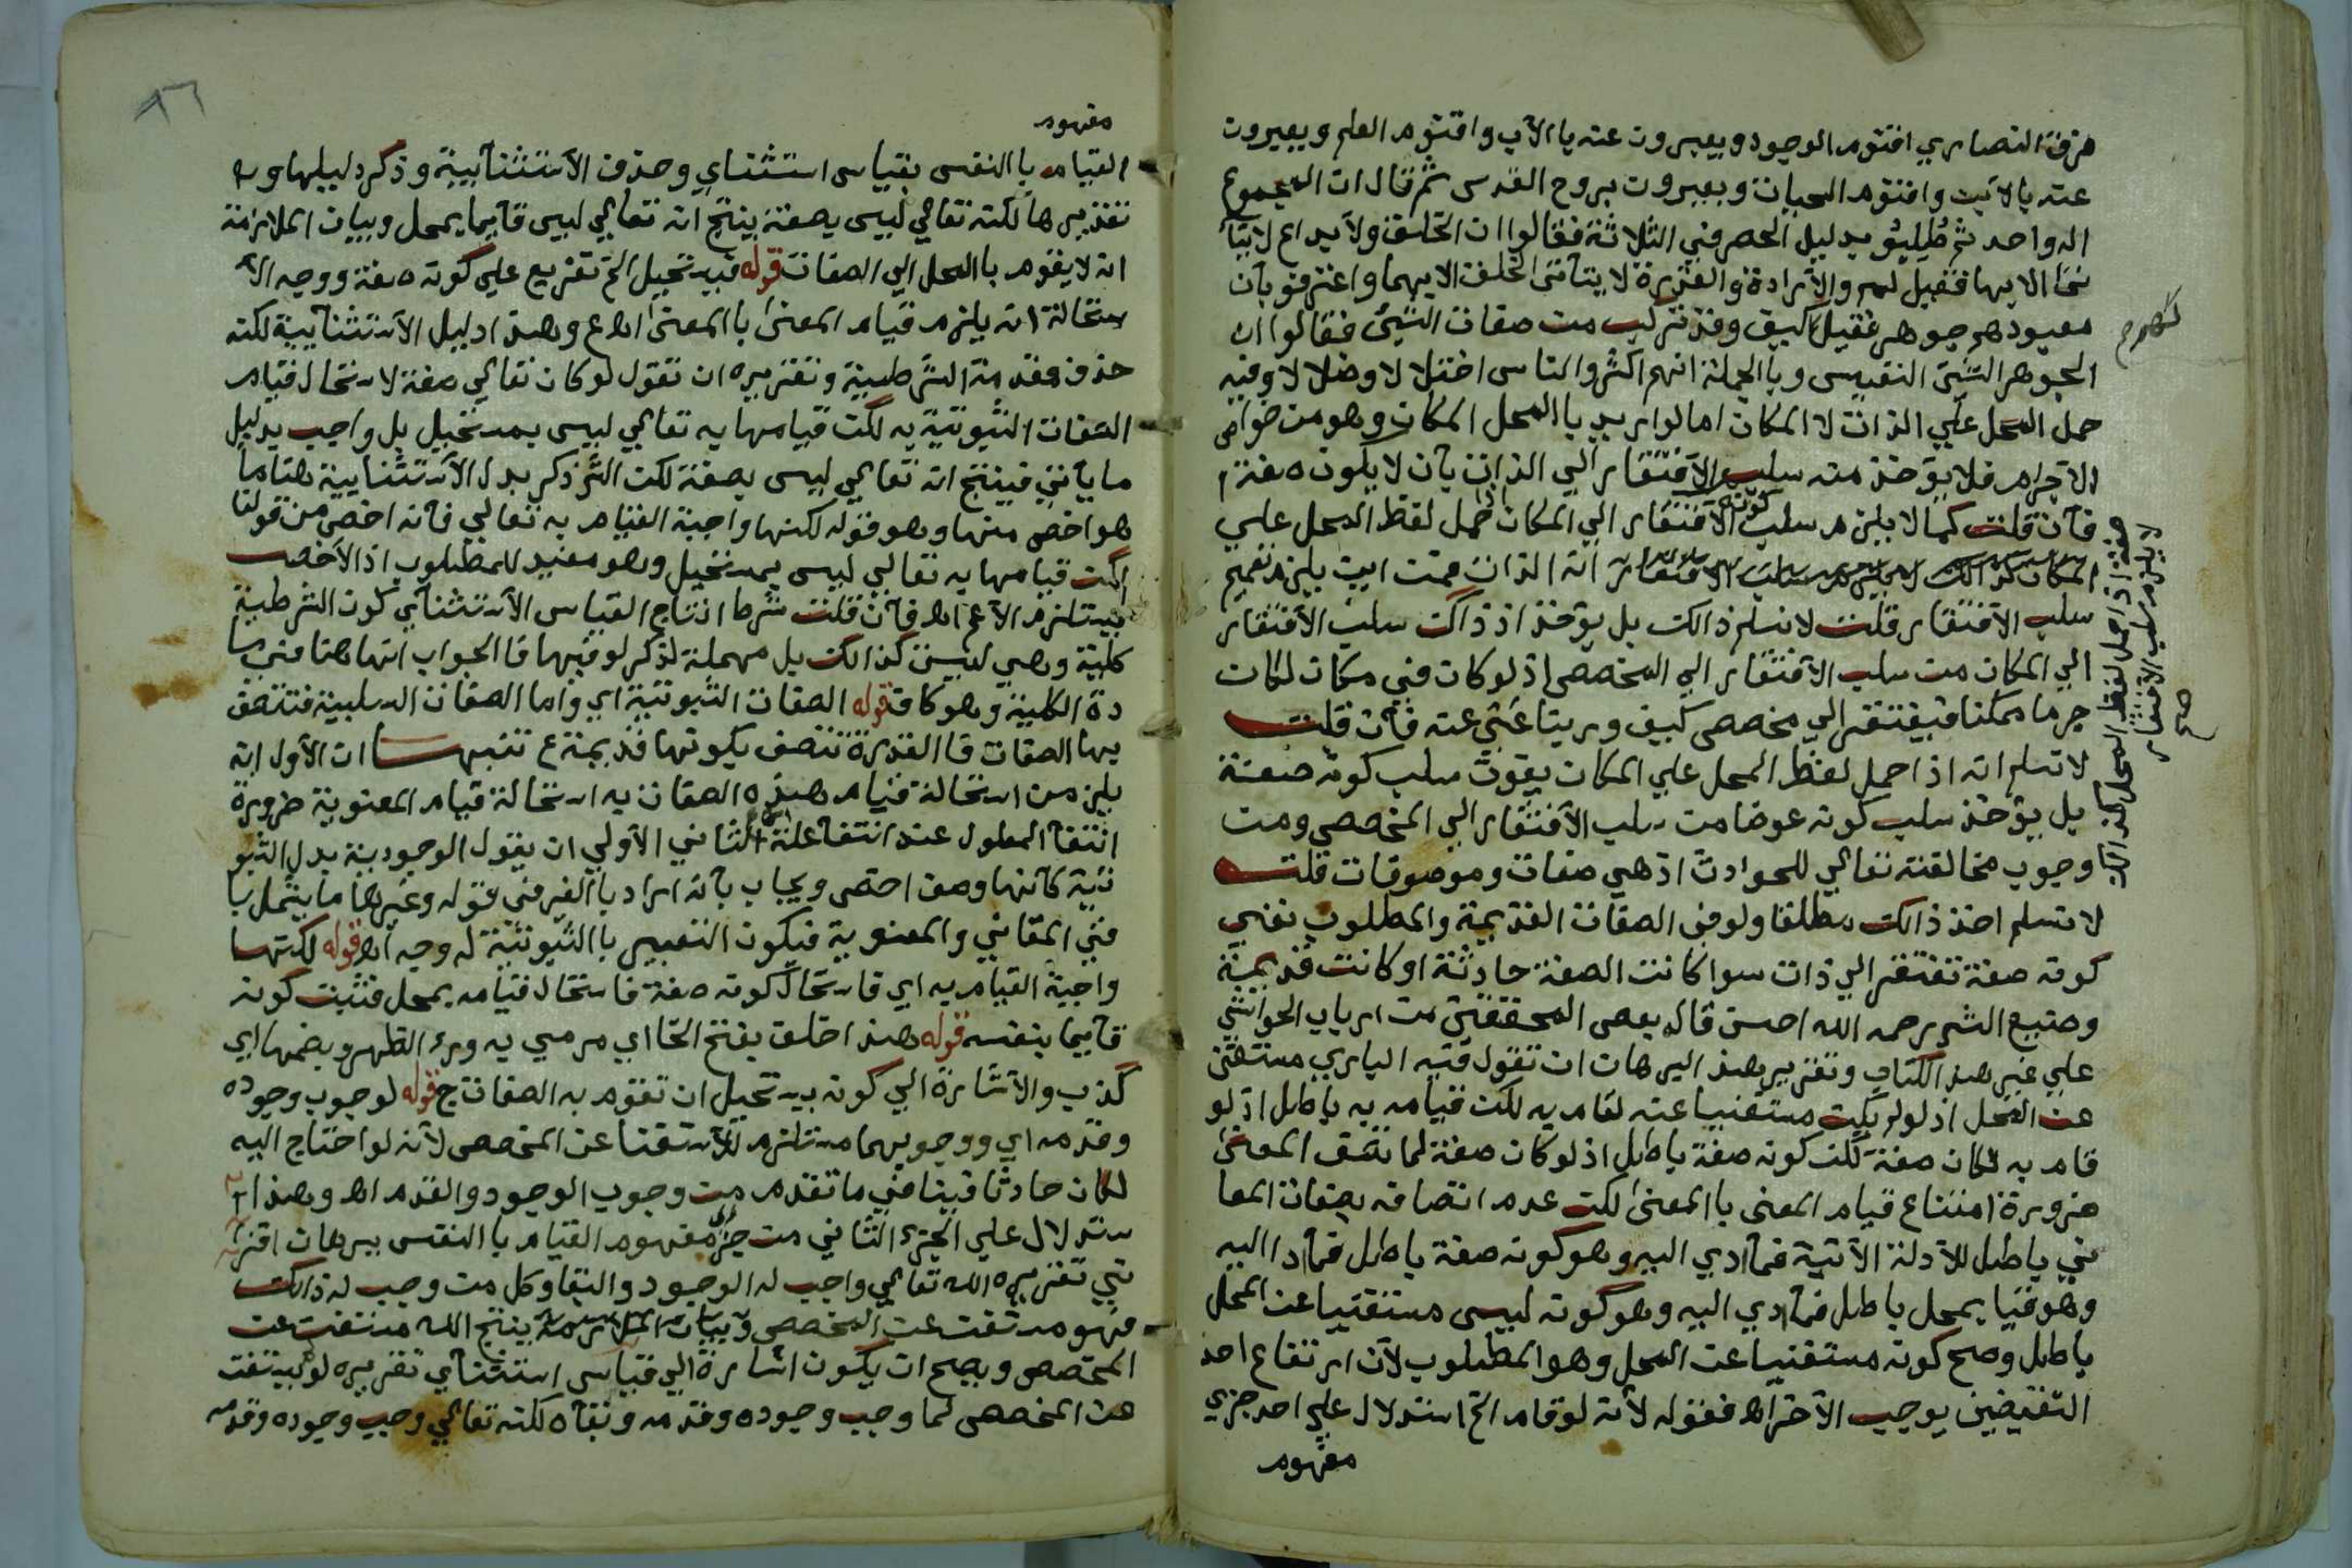 فرق النصاري اقنوم الوجود ويعبرون عنه بالاب واقنوم العلم ويعبرون
عنه بالابن واقنوم الحيات ويعبرون بروح القدس ثم قال ان المجموع
اله واحد ثم طلبو بدليل الحصر في الثلاثة فقالوا ان الخلق والابداع لا يتأ
تى الا بها فقيل لهم والارادة والقدرة لا يتأتى الخلق الا بهما واعترفو بأن
معبودهم جوهر فقيل كيف وقد تركب من صفات الشيء فقالوا ان
الجوهر الشيء النفيس وبالجملة انهم اكثر الناس اختلالا وضلالا وفيه
حمل المحل علي الذات لا المكان اما لو اريد بالمحل المكان وهو من خواص
الاجرام فلا يؤخذ منه سلب الافتقار الي الذات بأن لا يكون صفة
فأن قلت كما لا يلزم سلب الافتقار الي المكان حمل لفظ المحل علي
سلب الافتقار قلت لا نسلم ذالك بل يؤخذ اذ ذاك سلب الافتقار
الي المكان من سلب الافتقار الي المخصص اذ لو كان في مكان لكان
جرما ممكنا فيفتقر الي مخصص كيف وربنا غني عنه فأن قلت
لا نسلم انه اذا حمل لفظ المحل علي المكان يفوت سلب كونه صفة
بل يؤخذ سلب كونه عرضا من سلب الافتقار الي المخصص ومن
وجوب مخالفته تعالي للحوادث اذ هي صفات وموصوفات قلت
لا نسلم اخذ ذالك مطلقا ولو في الصفات القديمة والمطلوب نفي
كونه صفة تفتقر الي ذات سوا كانت الصفة حادثة او كانت قديمة
وصنيع الشم رحمه الله احسن قاله بعض المحققين من ارباب الحواشي
علي غير هذا الكتاب وتقرير هذا البرهان ان تقول فيه الباري مستغني
عن المحل اذ لو لم يكن مستغنيا عنه لقام به لكن قيامه به باطل اذ لو
قام به لكان صفة لكن كونه صفة باطل اذ لو كان صفة لما تصف المعنى
ضرورة امتناع قيام المعنى بالمعنى لكن عدم اتصافه بصفات المعا
ني باطل للادلة الاتية فما ادي اليه وهو كونه صفة باطل فما ادا اليه
وهو قيا بمحل باطل فما ادي اليه وهو كونه ليس مستغنيا عن المحل
باطل وصح كونه مستغنيا عن المحل وهو المطلوب لان ارتفاع احد
النقيضين يوجب الاخر اه فقوله لأنه لو قام الخ استدلال علي احد جزي
مفهوم
لا يلزم سلب الافتقار
صح
مفهوم
القيام بالنفس بقياس استثناي وحذف الاستثنائية وذكر دليلها و
تقديرها لكنه تعالي ليس بصفة ينتج انه تعالي ليس قايما بمحل وبيان الملازمة
انه لا يقوم بالمحل الي الصفات قوله فيستحيل الخ تفريع علي كونه صفة ووجه الا
ستحالة انه يلزم قيام المعنى بالمعنى اه ع وهذا دليل الاستثنايية لكنه
حذف مقدمة الشرطية وتقريره ان تقول لو كان تعالي صفة لاستحال قيام
الصفات الثبوتية به لكن قيامها به تعالي ليس بمستحيل بل واجب بدليل
ما يأتي فينتج انه تعالي ليس بصفة لكن الشم ذكر بدل الاستثنايية هنا ما
هو اخص منها وهو قوله لكنها واجبة القيام به تعالي فأنه اخص من قولنا
لكن قيامها به تعالي ليس بمستحيل وهو مفيد للمطلوب اذ الاخص
يستلزم الاعم اه فأن قلت شرط انتاج القياس الاستثنائي كون الشرطية
كلية وهي ليست كذالك بل مهملة لذكر لو فيها فالجواب انها هنا في ما
دة الكلية وهو كاف قوله الصفات الثبوتية اي واما الصفات السلبية فتتصف
بها الصفات فالقدرة تتصف بكونها قديمة ع تنبيهان الأول انه
يلزم من استحالة قيام هذه الصفات به استحالة قيام المعنوية ضرورة
انتفا المعلول عند انتفا علته الثاني الأولي ان يقول الوجودية بدل الثبو
تية كأنها وصف اخص ويجاب بأنه اراد بالغير في قوله وغيرها ما يشمل با
في المعاني والمعنوية فيكون التعبير بالثبوتية له وجه اه قوله لكنها
واجبة القيام به اي فاستحال كونه صفة فاستحال قيامه بمحل فثبت كونه
قايما بنفسه قوله هذا خلف بفتح الخا اي مرمي به وراء الظهر وبضمها اي
كذب والاشارة الي كونه يستحيل ان تقوم به الصفات ج قوله لوجوب وجوده
وقدمه اي ووجوبهما مستلزم للاستغنا عن المخصص لأنه لو احتاج اليه
لكان حادثا فينافي ما تقدم من وجوب الوجود والقدم اه وهذا ا
ستدلال علي الجزء الثاني من جزي مفهوم القيام بالنفس ببرهان اقترا
ني تقريره الله تعالي واجب له الوجود والبقا وكل من وجب له ذالك
فهو مستغن عن المخصص ينتج الله مستغن عن
المخصص ويصح ان يكون اشارة الي قياس استثنائي تقريره لو لم يستغن
عن المخصص لما وجب وجوده وقدمه وبقاه لكنه تعالي وجب وجوده وقدمه